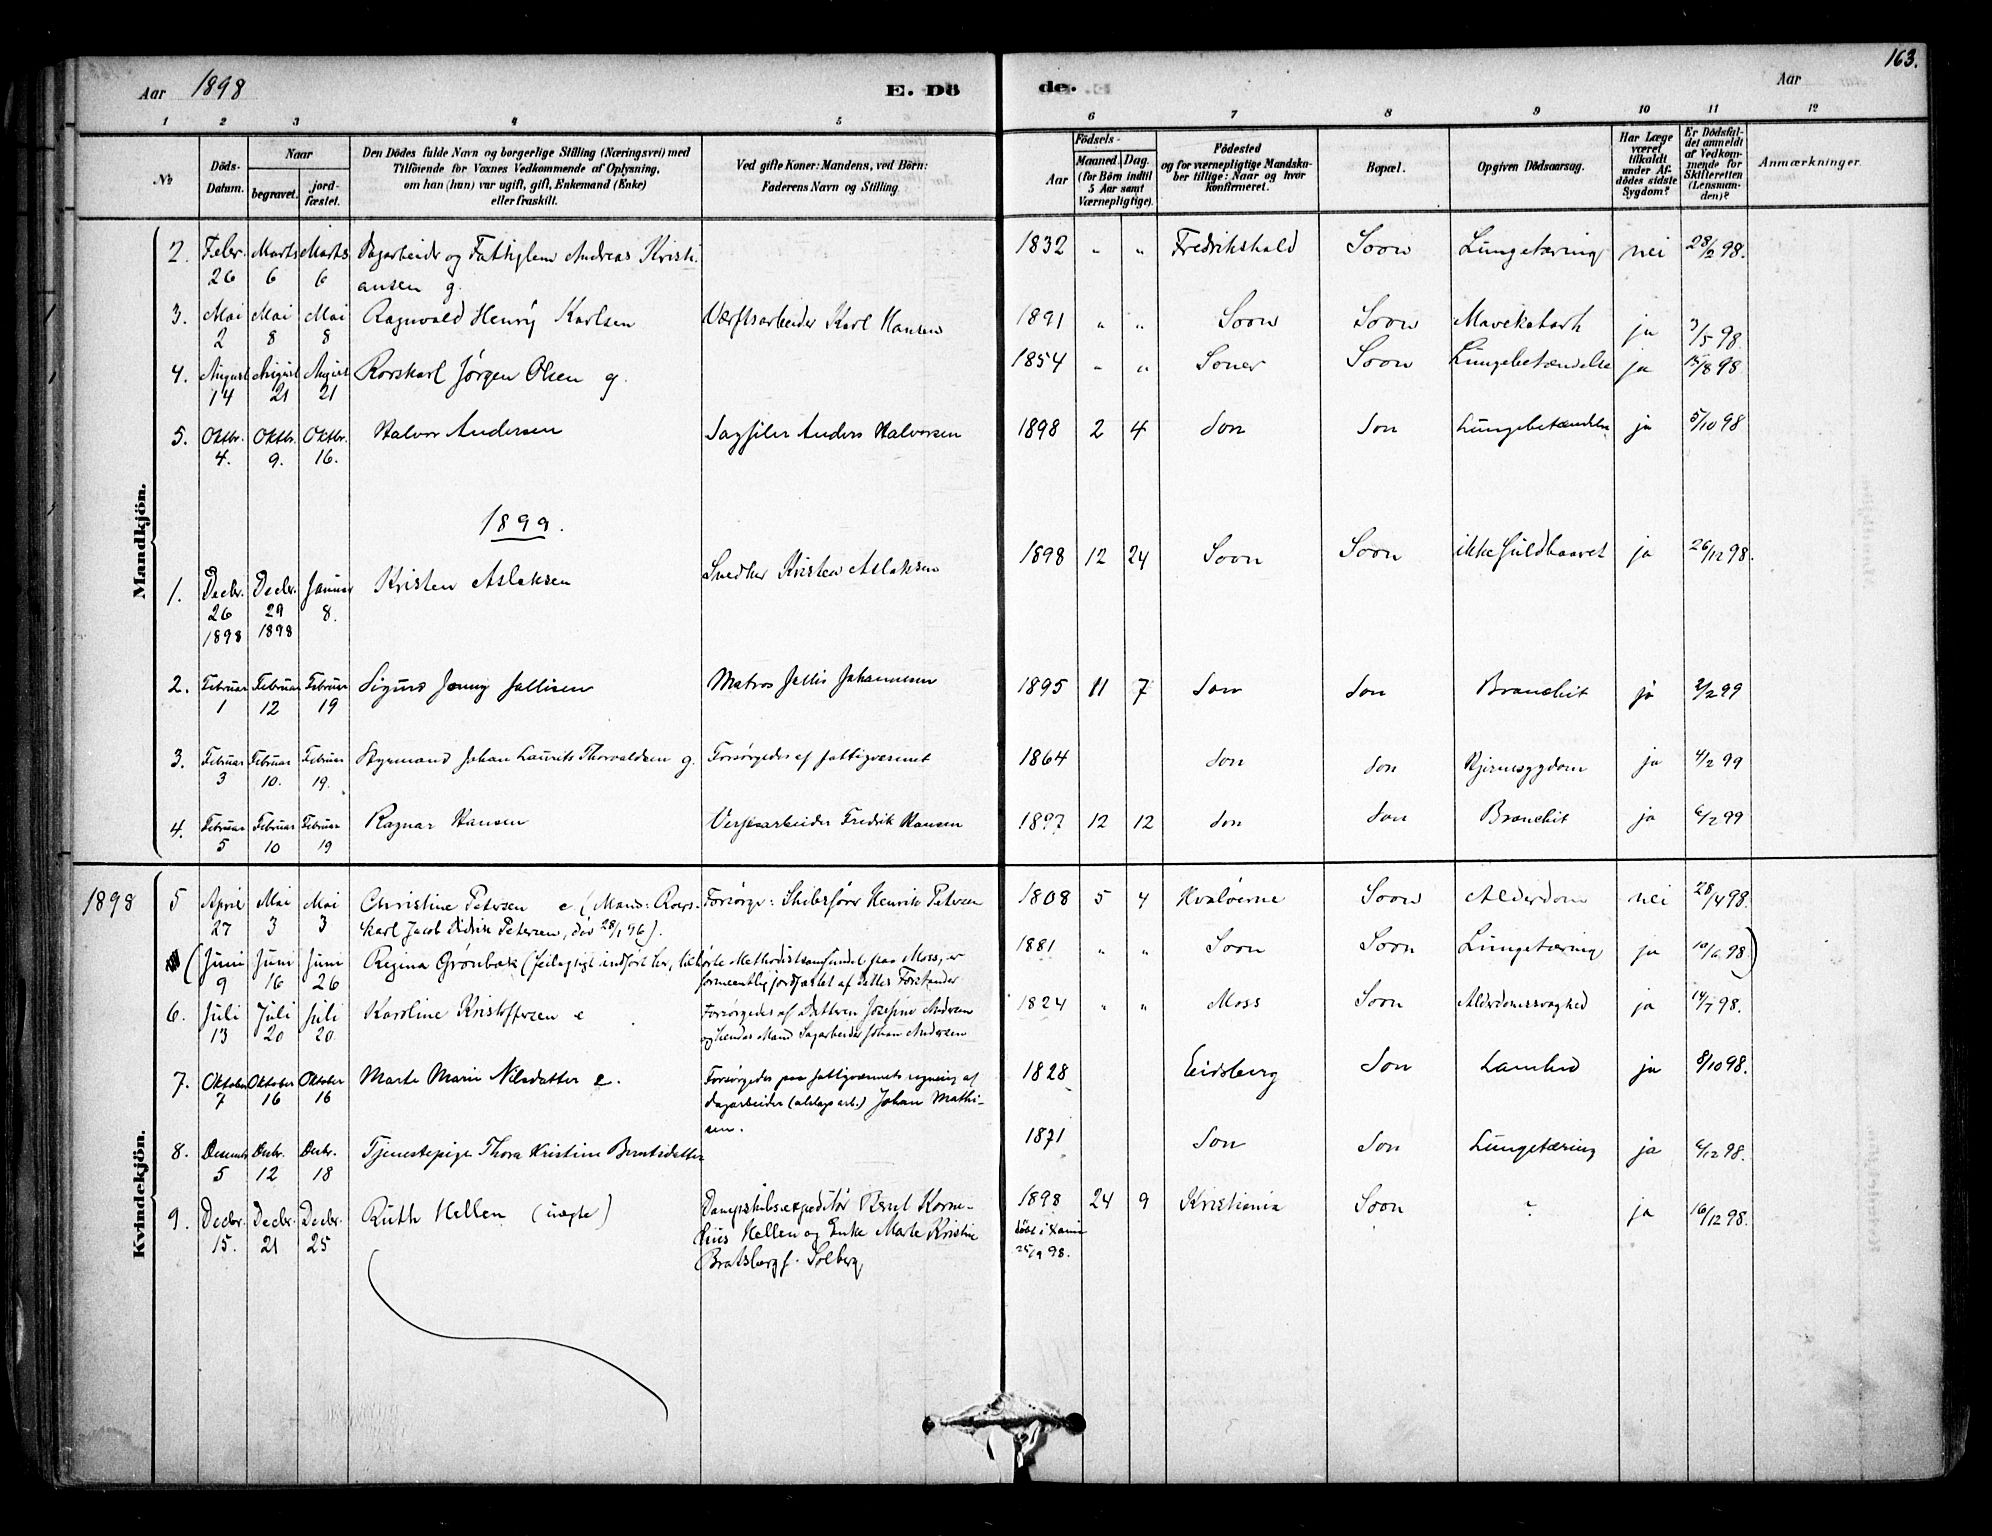 Aar 1898
E. Dö
de.
Aar
163.
1 2 3 4 5 6 7 8 9 10 11 12
№
Döds-Datum.
Naar
begravet.
jord-fæstet.
Den Dödes fulde Navn og borgerlige Stilling (Næringsvei) med
Tilföiende for Voxnes Vedkommende af Oplysning,
om han (hun) var ugift, gift, Enkemand (Enke)
eller fraskilt.
Ved gifte Koner: Mandens, ved Börn:
Faderens Navn og Stilling
Födsels-
Aar
Maaned. Dag.
(for Börn indtil
5 Aar samt
Værnepligtige).
Födested
og for værnepligtige Mandska-
ber tillige: Naar og hvor
konfirmeret.
Bopæl.
Opgiven Dödsaarsag.
Har Læge
været
tilkaldt
under Af-
dödes sidste
Sygdom?
Er Dödsfal-
det anmeldt
af Vedkom-
mende for
Skifteretten
(Lensman-
den)?
Anmærkninger.
Mandkjön.
2. Febr. 26 Marts 6 Marts 6 Dagarbeider og Fattiglem Andreas Kristi- 1832 " " Fredrikshald Soon Lungetæring nei 28/2 98.
ansen g.
3. Mai 2 Mai 8 Mai 8 Ragnvald Henry Karlsen Værftsarbeider Karl Hansen 1891 " " Soon Soon Mavekatarh ja 3/5 98.
4. August 14 August 21 August 21 Rorskarl Jørgen Olsen g. 1854 " " Soner Soon Lungebetændelse ja 15/8 98
5. Oktbr. 4. Oktbr. 9. Oktbr. 16. Halvor Andersen Sagfiler Anders Halvorsen 1898 2 4 Son Son Lungebetændelse ja 5/10 98
1899.
1. Decbr. 26 1898 Decbr. 29 1898 Januar 8. Kristen Aslaksen Snedker Kristen Aslaksen 1898 12 24 Soon Soon ikke fuldbaaret ja 26/12 98.
2. Februar 1 Februar 12 Februar 19 Sigurd Jenny Jallisen Matros Jallis Johannesen 1895 11 7 Son Son Bronchit ja 2/2 99
3. Februar 3 Februar 10. Februar 19. Styrmand Johan Laurits Thorvaldsen g. Forsørgedes af fattigvæsenet 1864 Son Son Hjernesygdom ja 4/2 99
4. Februar 5 Februar 10 Februar 19 Ragnar Hansen Verftsarbeider Fredrik Hansen 1897 12 12 Son Son Bronchit ja 6/2 99
1898
Kvindekjön.
5 April 27 Mai 3 Mai 3 Christine Petersen e (Mand: Rors- Forsørger: Skibsfører Henrik Petersen 1808 5 4 Hvaløerne Soon Alderdom nei 28/4 98.
karl Jacob Didrik Petersen, død 28/1 96).
(Juni 9 Juni 16 Juni 26 Regina Grønbæk (feilagtigt indført her, tilhørte Methodistsamfundet paa Moss, er 1881 " " Soon Soon Lungetæring ja 10/6 98)
formeentlig jordfæstet af dettes Forstander
6. Juli 13 Juli 20 Juli 20. Karoline Kristoffersen e Forsørgedes af Datteren Josefine Andersen 1824 " " Moss Soon Alderdomssvaghed ja 14/7 98.
og hendes Mand Sagarbeider Johan Andersen
7. Oktober 7 Oktober 16 Oktober 16 Marte Marie Nilsdatter e. Forsørgedes paa fattigvæsenets regning af 1828 Eidsberg Son Lamhed ja 8/10 98.
dagarbeider (alslags arb.) Johan Mathi-
sen.
8. Decembr 5 Decbr. 12 Decbr. 18 Tjenestepige Thora Kristine Berntsdatter 1871 Son Son Lungetæring ja 6/12 98.
9. Decbr. 15. Decbr. 21 Decbr. 25 Ruth Hellen (uægte) Dampskibsexpeditør Bernt Korne- 1898 24 9 Kristiania Soon ? ja 16/12 98.
lius Hellen og Enke Marte Kristine døbt i
Bratsberg f. Solberg 25/9 98.